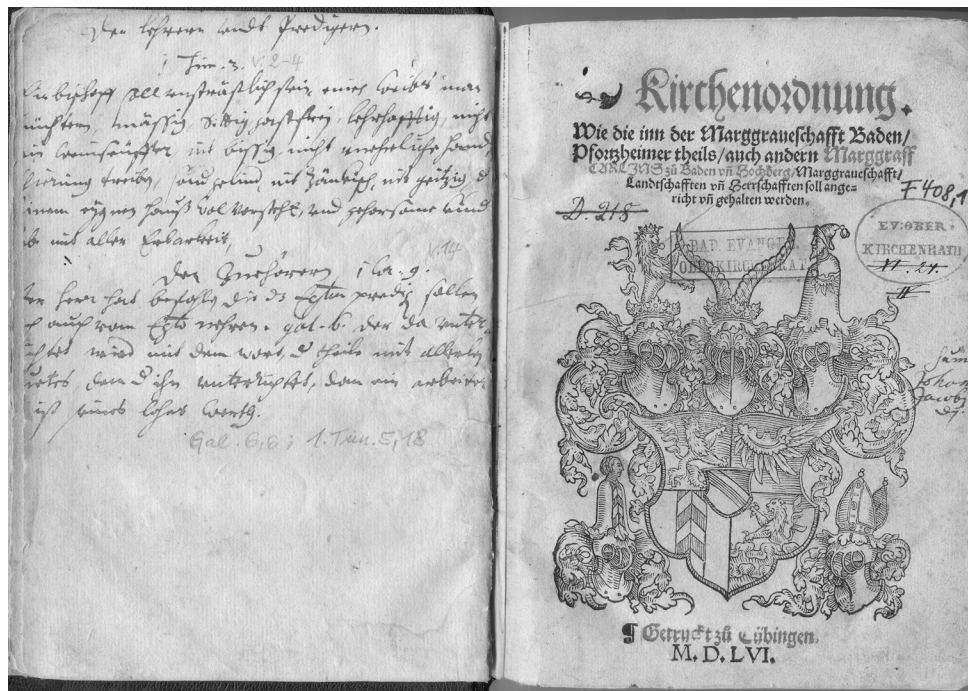 Den lehrern undt Predigern.
1 Tim. 3. v. 2-4
bischoff soll unsträfflich sein, eines weibs man
nüchtern, mässig, sittig, gastfrei, lehrhafftig, nicht
ein weinseuffer, nit bissig, nicht
treibe, nit zänkisch, nit geitzig, d
seinem eygnen hauß wol vorsteht, und gehorsame kind
hab mit aller Erbarkeit,
v. 14
Den Zuhörern, 1 Co. 9.
Der herr hatt befohle, die dz Egtm predig sollen
sich auch vom Egto nehren. gal. 6. Der da unter-
richtet wird mit dem wort, d theile mit allerley
gutes, dem d ihn unterrichtet, dan ein arbeiter
ist seines lohns werth.
Gal. 6,6; 1. Tim. 5,18
Kirchenordnung.
Wie die inn der Marggraueschafft Baden/
Pfortzheimer theils/auch andern Marggraff
CARLINS zů Baden vñ Hochberg/Marggraueschafft/
Landtschafften vñ Herrschafften soll ange-
richt vñ gehalten werden.
F 408,1
D. 218
EV: OBER-
KIRCHENRATH
XI. 24.
IV
BAD. EVANGEL.
OBERKIRCHENRAT
sum
Johan
Jacoby
¶ Getruckt zů Tübingen.
M. D. LVI.